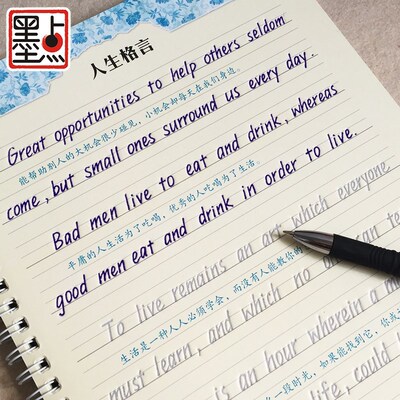 墨点
人生格言
Great opportunities to help others seldom
能帮助别人的大机会很少碰见，小机会却每天在我们身边。
come, but small ones surround us every day.
Bad men live to eat and drink, whereas
平庸的人生活为了吃喝，优秀的人吃喝为了生活。
good men eat and drink in order to live.
To live remains an art which everyone
生活是一种人人必须学会，而没有人能教你的
must learn, and which no
is an hour wherein a m
一段时光，如果能找到它，你或
life, could